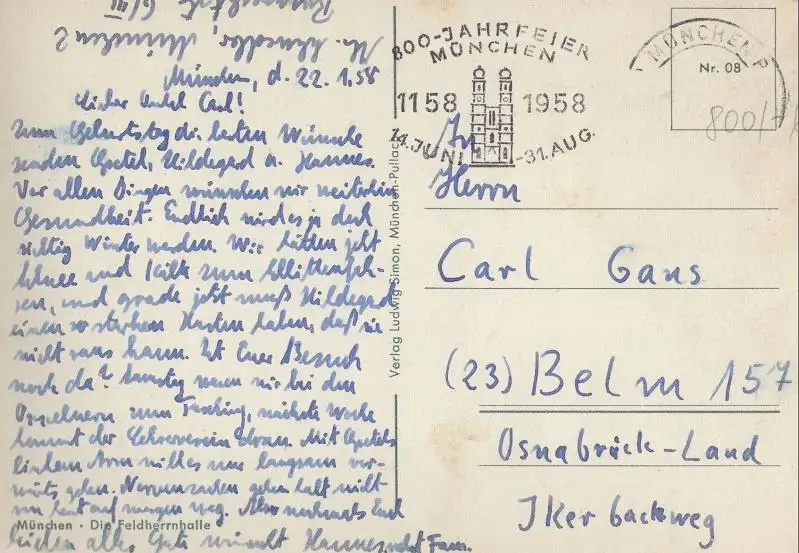 München 2
München, d. 22.1.58
Lieber Onkel Carl!
Zum Geburtstag die besten Wünsche
senden Gretel, Hildegard u. Hannes.
Vor allen Dingen wünschen wir weiterhin
Gesundheit. Endlich wird es ja doch
richtig Winter werden. Wir hätten jetzt
Schnee und Kälte zum Schlittenfah-
ren, und grade jetzt muß Hildegard
einen so starken Husten haben, daß sie
nicht raus kann. Ist Euer Besuch
noch da? Samstag waren wir bei den
zum Fasching, nächste Woche
kommt der Lehrerverein dran. Mit Gretels
linkem Arm will es nur langsam vor-
wärts gehen. Nervensachen gehen halt nicht
von heut auf morgen weg. Also nochmals Euch
alles Gute wünscht Hannes nebst Fam.
München · Die Feldherrnhalle
Verlag Ludwig Simon, München-Pullach
800-JAHRFEIER
MÜNCHEN
1158 1958
14. JUNI - 31. AUG.
MÜNCHEN
Nr. 08
Herrn
Carl Gans
(23) Belm 157
Osnabrück-Land
Ikerbackweg